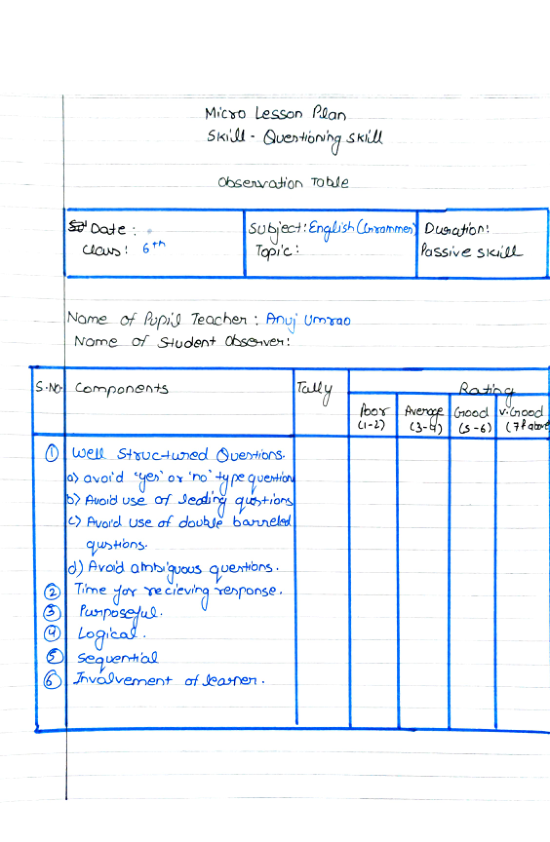 Micro Lesson Plan
Skill - Questioning skill
Observation Table
Date :
Class : 6th
Subject : English (Grammer)
Topic :
Duration:
Passive skill
Name of Pupil Teacher : Anuj Umrao
Name of Student Observer :
S.No. Components Tally Rating
Poor (1-2) Average (3-4) Good (5-6) V.Good (7 & above
① Well Structured Questions.
a) avoid "yes' or 'no' type question
b) Avoid use of leading qustions
c) Avoid use of double barreled
qustions.
d) Avoid ambiguous questions.
② Time for recieving response.
③ Purposeful.
④ Logical.
⑤ sequential
⑥ Involvement of learner.